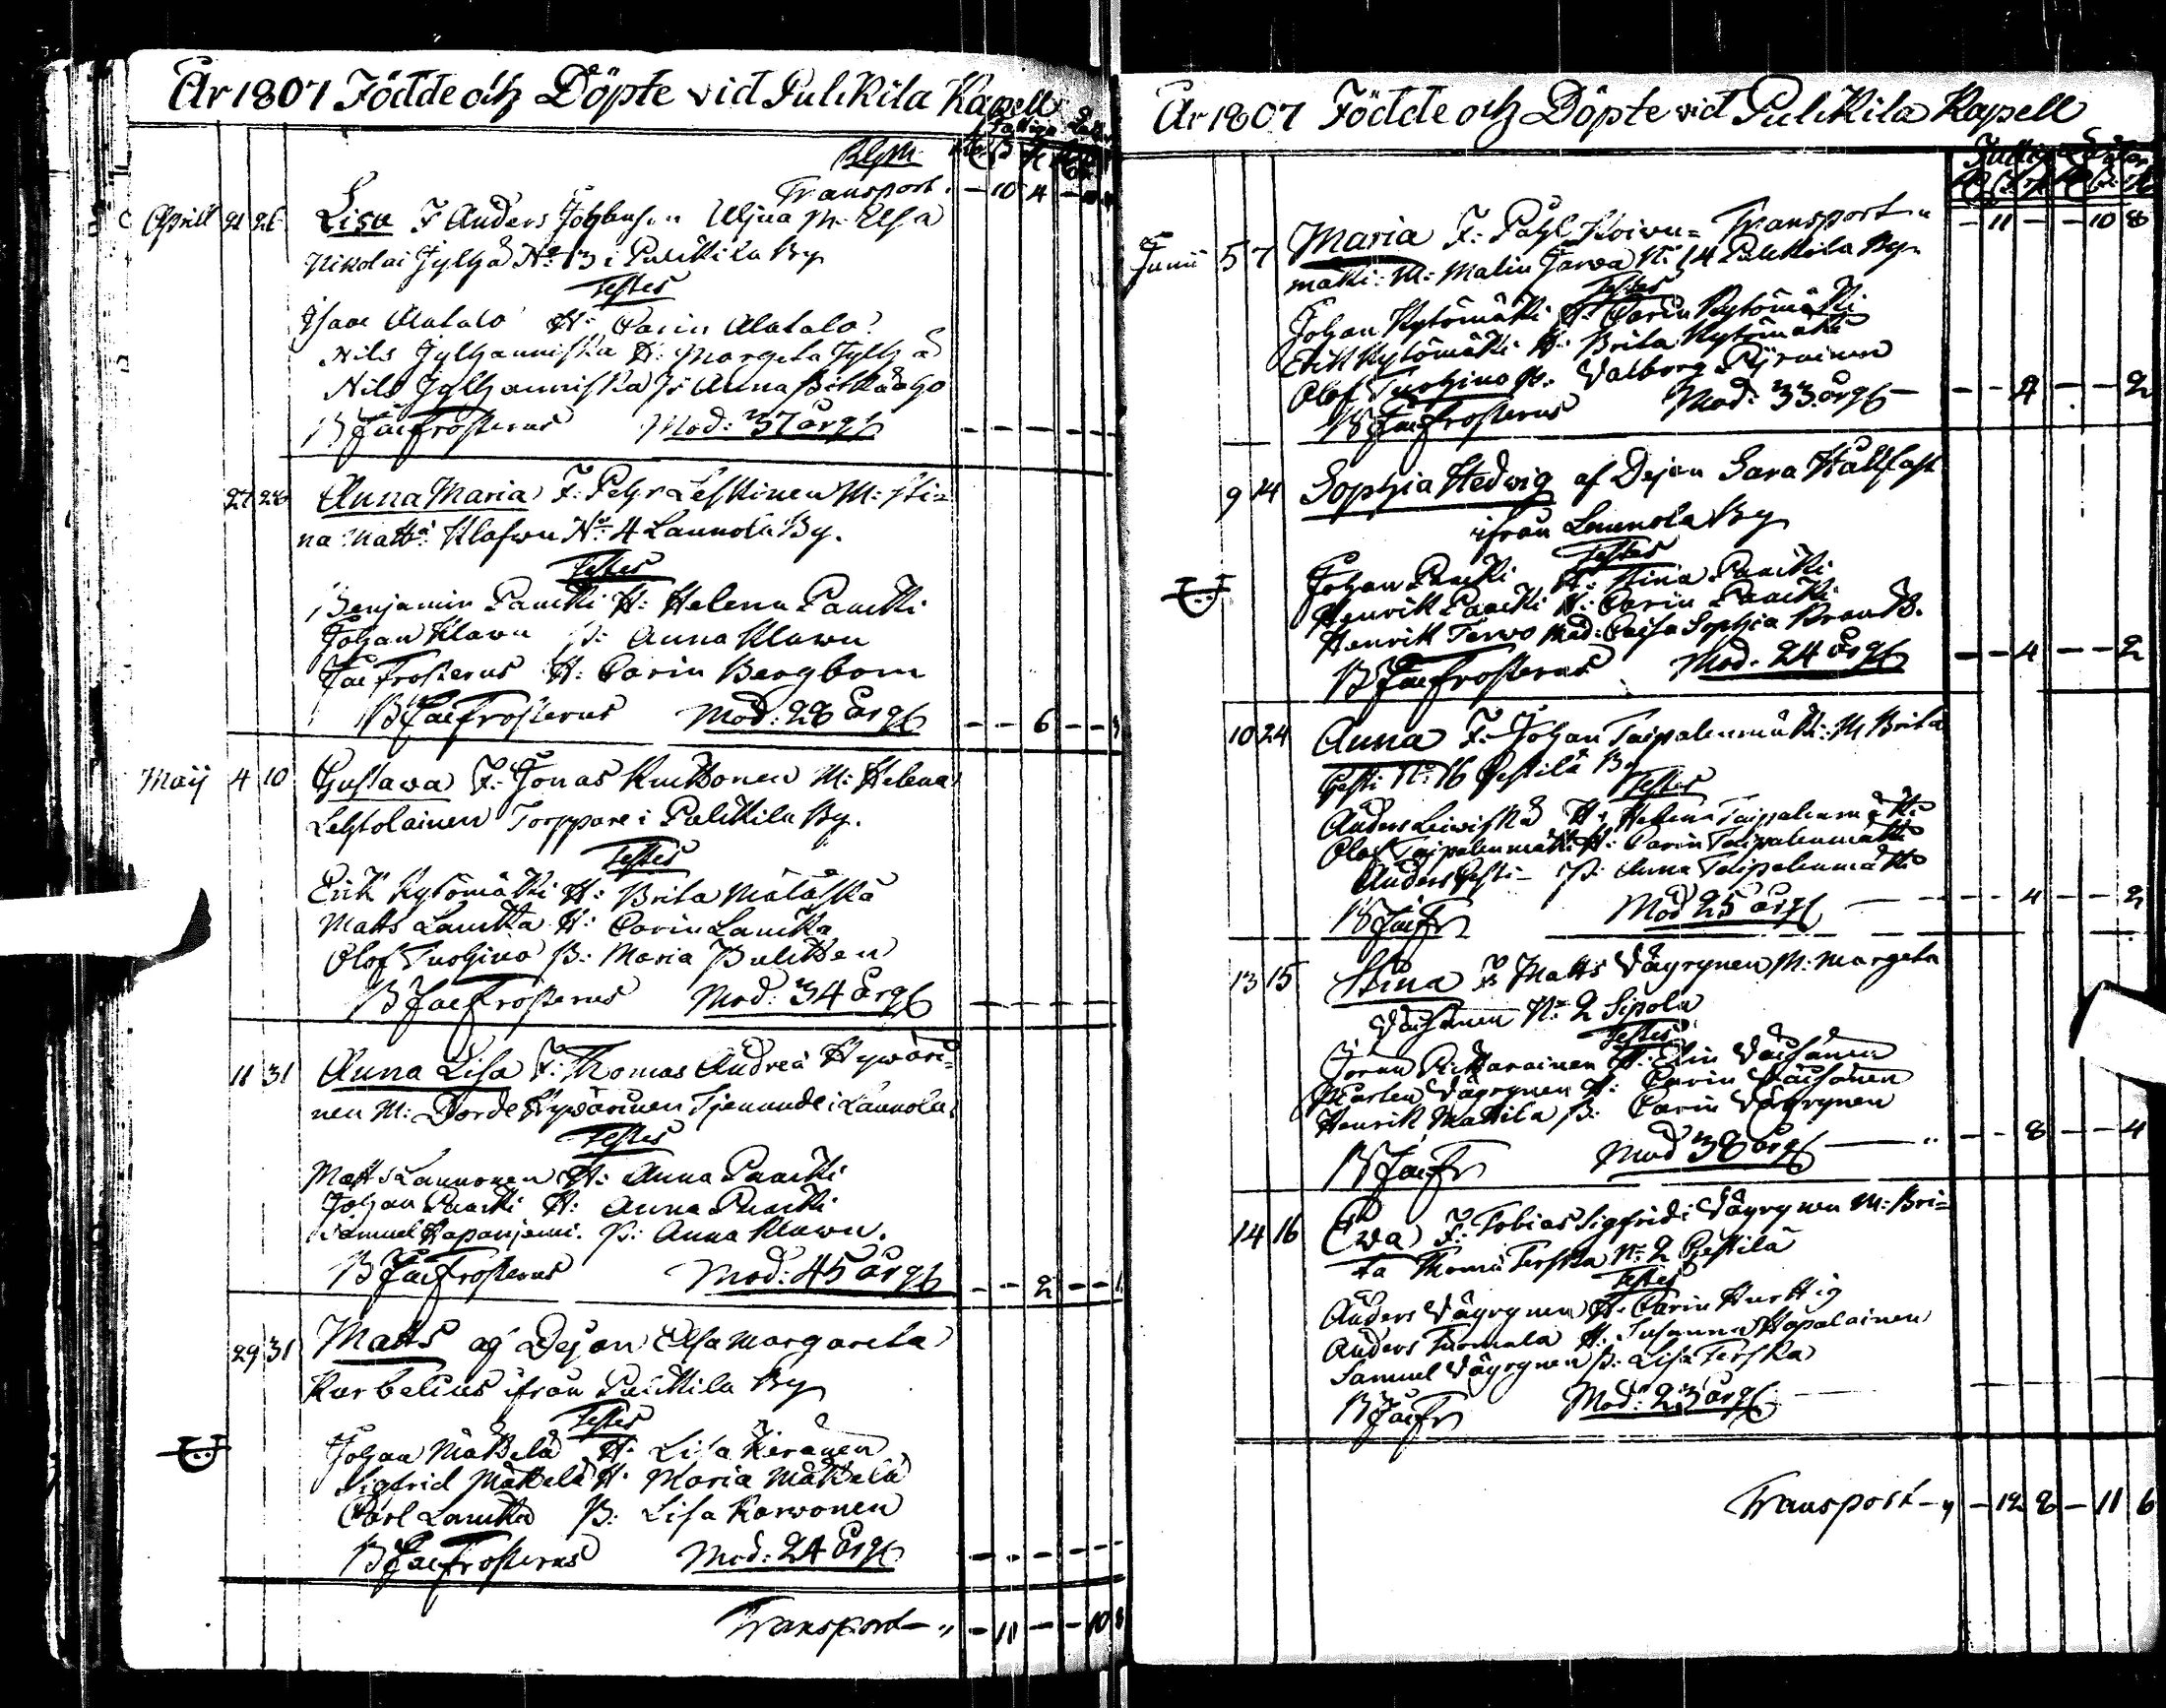 År 1807 Födde och Döpte vid Pulkila Kapell
Transport. – 10 4 –
Aprill 21 26 Lisa F. Anders Uljua M: Elsa
Nikolai Jylhä No 13 i Pulkkila By
Testes
Isaac Alatalo H: Carin Alatalo
Nils Jylhänniska H: Margeta Jylhä
Nils Jylhänniska P: Anna Pitkäaho
B Jac Frosterus Mod: 37 årg
27 28 Anna Maria F: Pehr Leskinen M: Sti=
na Matts: Klafwu No 4 Lannola By.
Testes
Benjamin Paackki H: Helena Paackki
Johan Klawu P: Anna Klawu
Jac Frosterus H: Carin Bergbom
B Jac Frosterus Mod: 28 årg – – 6 – –
Maij 4 10 Gustawa F: Jonas M: Helena
Lehtolainen Torppare i Pulkkila By.
Testes
Erik Kytömäki H: Brita Mätäskä
Matts Lauckka H: Carin Lauckka
Olof Tuohino P: Maria Pulkken
B Jac Frosterus Mod: 34 årg
11 31 Anna Lisa F: Thomas Andreä Hywäri=
nen M: Dorde Hywärinen Tjenande i Lannola
Testes
Matts Lannonen H: Anna Paackki
Johan Paackki H: Anna Paackki
Samuel Haapaniemi. P: Anna Klawu.
B Jac Frosterus Mod: 45 årg – – 2 – –
29 31 Matts af Dejan Elsa Margareta
Korbelius ifrån Pulkkila By
Testes
Johan Mäkkelä H: Lisa Keränen
Sigfrid Mäkkelä H: Maria Mäkkelä
Carl Lauckka P: Lisa Karwonen
B Jac Frosterus Mod: 24 årg
Transport – " – 11 – – 10 8
År 1807 Födde och Döpte vid Pulkkila Kapell
Transport " – 11 – – 10 8
Junii 5 7 Maria F: Påhl Koivu=
mäki: M: Malin Jarwa No 14 Pulkkila By
Testes
Johan Kytömäki H: Carin Kytömäki
Erik Kytömäki H: Brita Kytömäki
Olof Tuohino P: Valborg Pyrainen
B Jac Frosterus Mod: 33 årg – – – 4 – – 2
9 14 Sophia Hedwig af Dejan Sara Hållfast
ifrån Lannola By
Testes
Johan Paackki H: Stina Paackki
Henrik Paackki H: Carin Paackki
Henrik Terwo Mad: Caisa Sophia Brandt.
B Jac Frosterus Mod. 24 årg – – 4 – – 2
10 24 Anna F: Johan Taipalenmäki: M Brita
Gesti No 16 Gestilä By
Testes
Anders Leiwiskä H: Helena Taipalenmäki
Olof Taipalenmäki H: Carin Taipalenmäki
Anders Gesti – P: Anna Taipalenmäki
B Jac Fr Mod 25 årg – – – 4 – – 2
13 15 Stina F: Matts Väyrynen M: Margeta
Väisänen No 2 Sipola
Testes
Jöran H: Elin Väisänen
Mårten Väyrynen H: Carin Väisänen
Henrik Mattila P: Carin Väyrynen
B Jac Fr Mod 38 årg – " – – 8 – – 4
14 16 Ewa F: Tobias Sigfridi Väyrynen M: Bri=
ta Thomä Terska No 2 Gestilä
Testes
Anders Väyrynen H: Carin Hurttig
Anders Turmala H: Susanna Hapalainen
Samuel Väyrynen P: Lisa Terska
B Jac Fr Mod: 23 årg –
Transport – " – 12 8 – 11 6